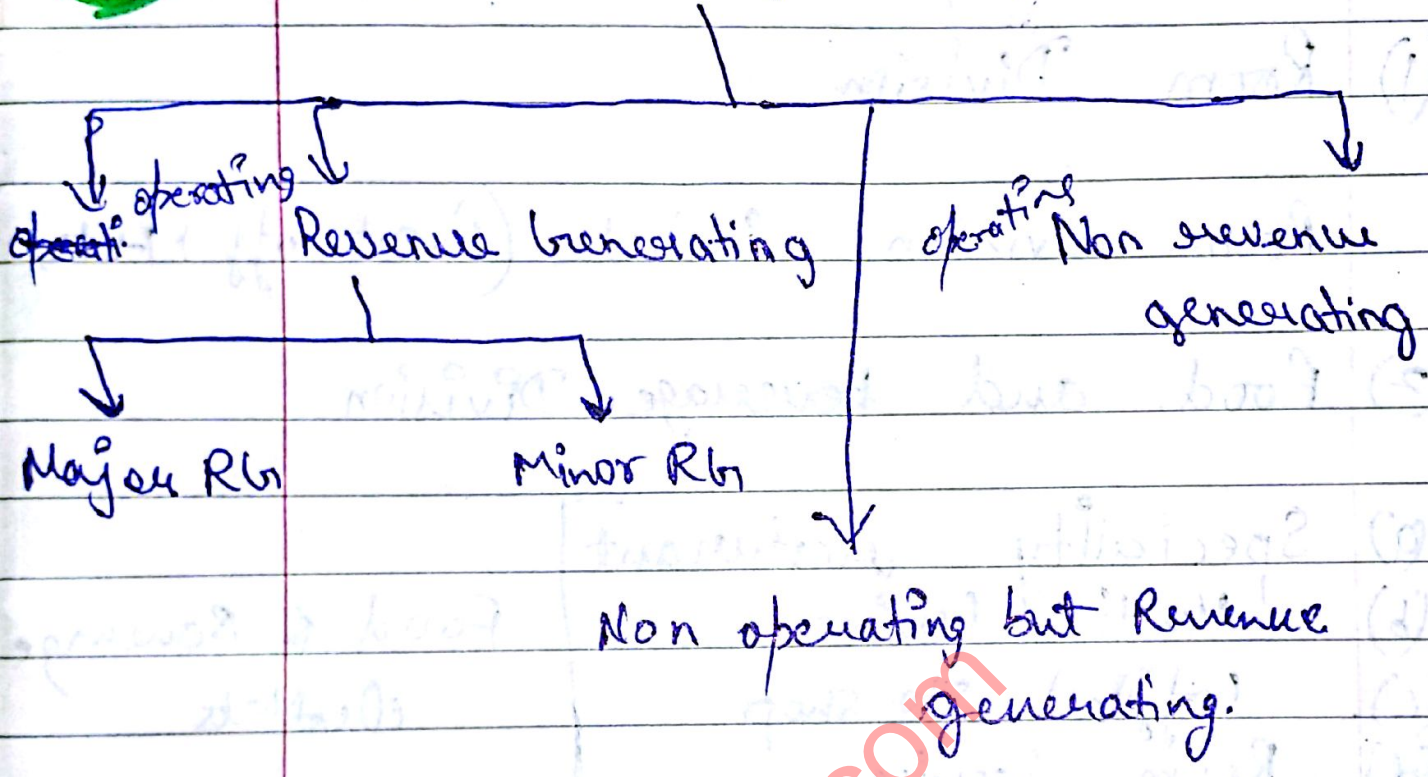 operating
Revenue Generating
operating Non revenue
generating
Major RG
Minor RG
Non operating but Revenue
generating.
com